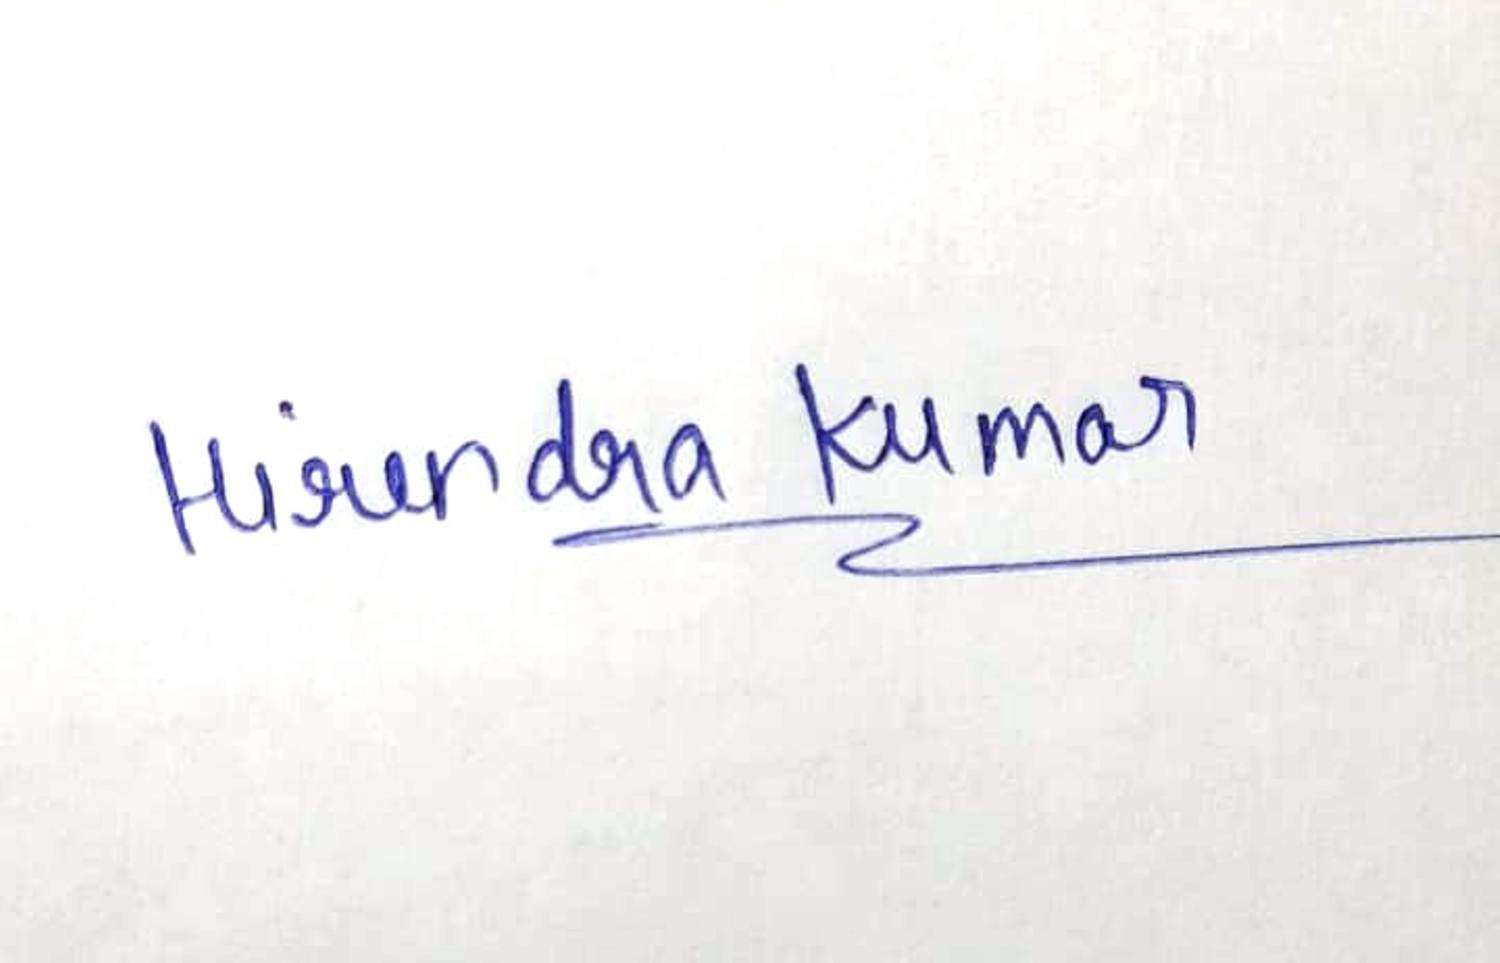 Hirendra Kumar